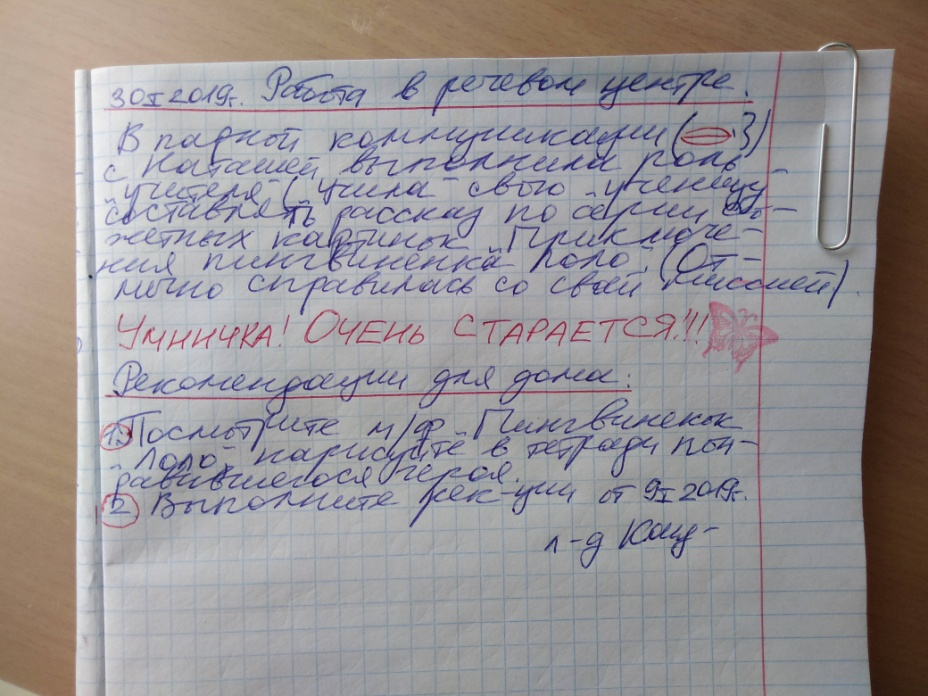 30 I 2019г. Работа в речевом центре.
В парной коммуникации (З)
с Наташей выполнила роль
учителя (учила свою ученицу
составлять рассказ по серии сю-
жетных картинок "Приключе-
ния пингвинёнка Лоло". (От-
лично справилась со своей миссией)
УМНИЧКА! ОЧЕНЬ СТАРАЕТСЯ!!!
Рекомендации для дома:
1. Посмотрите м/ф "Пингвиненок
Лоло" нарисуйте в тетради пон-
равившегося героя.
2 Выполните рек-ции от 9 I 2019г.
л-д